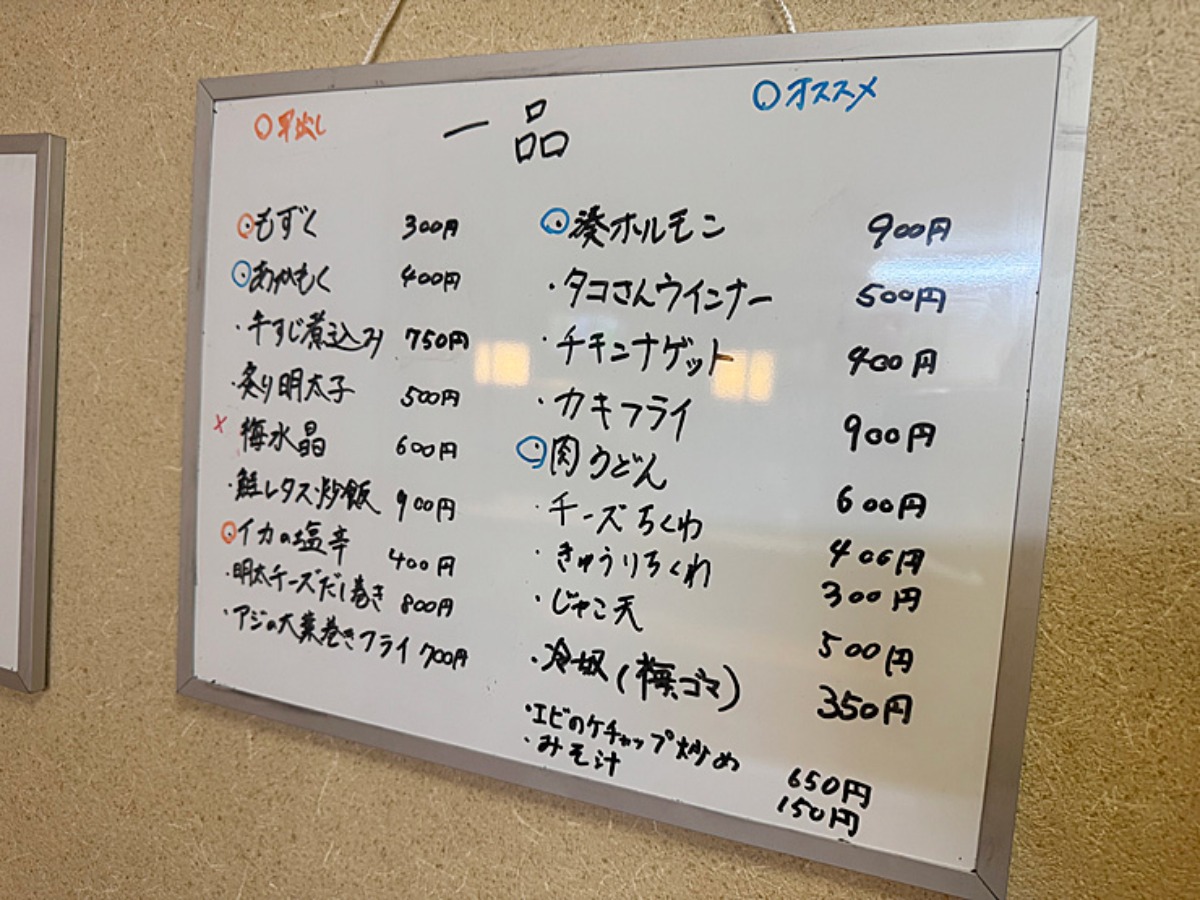 ○早出し
一品
○オススメ
○もずく 300円
○あかもく 400円
・牛すじ煮込み 750円
・炙り明太子 500円
×梅水晶 600円
・鮭レタス炒飯 900円
○イカの塩辛 400円
・明太チーズだし巻き 800円
・アジの大葉巻きフライ 700円
○湊ホルモン 900円
・タコさんウインナー 500円
・チキンナゲット 400円
・カキフライ 900円
○肉うどん 600円
・チーズちくわ 400円
・きゅうりちくわ 300円
・じゃこ天 500円
・冷奴(梅、ゴマ) 350円
・エビのケチャップ炒め 650円
・みそ汁 150円